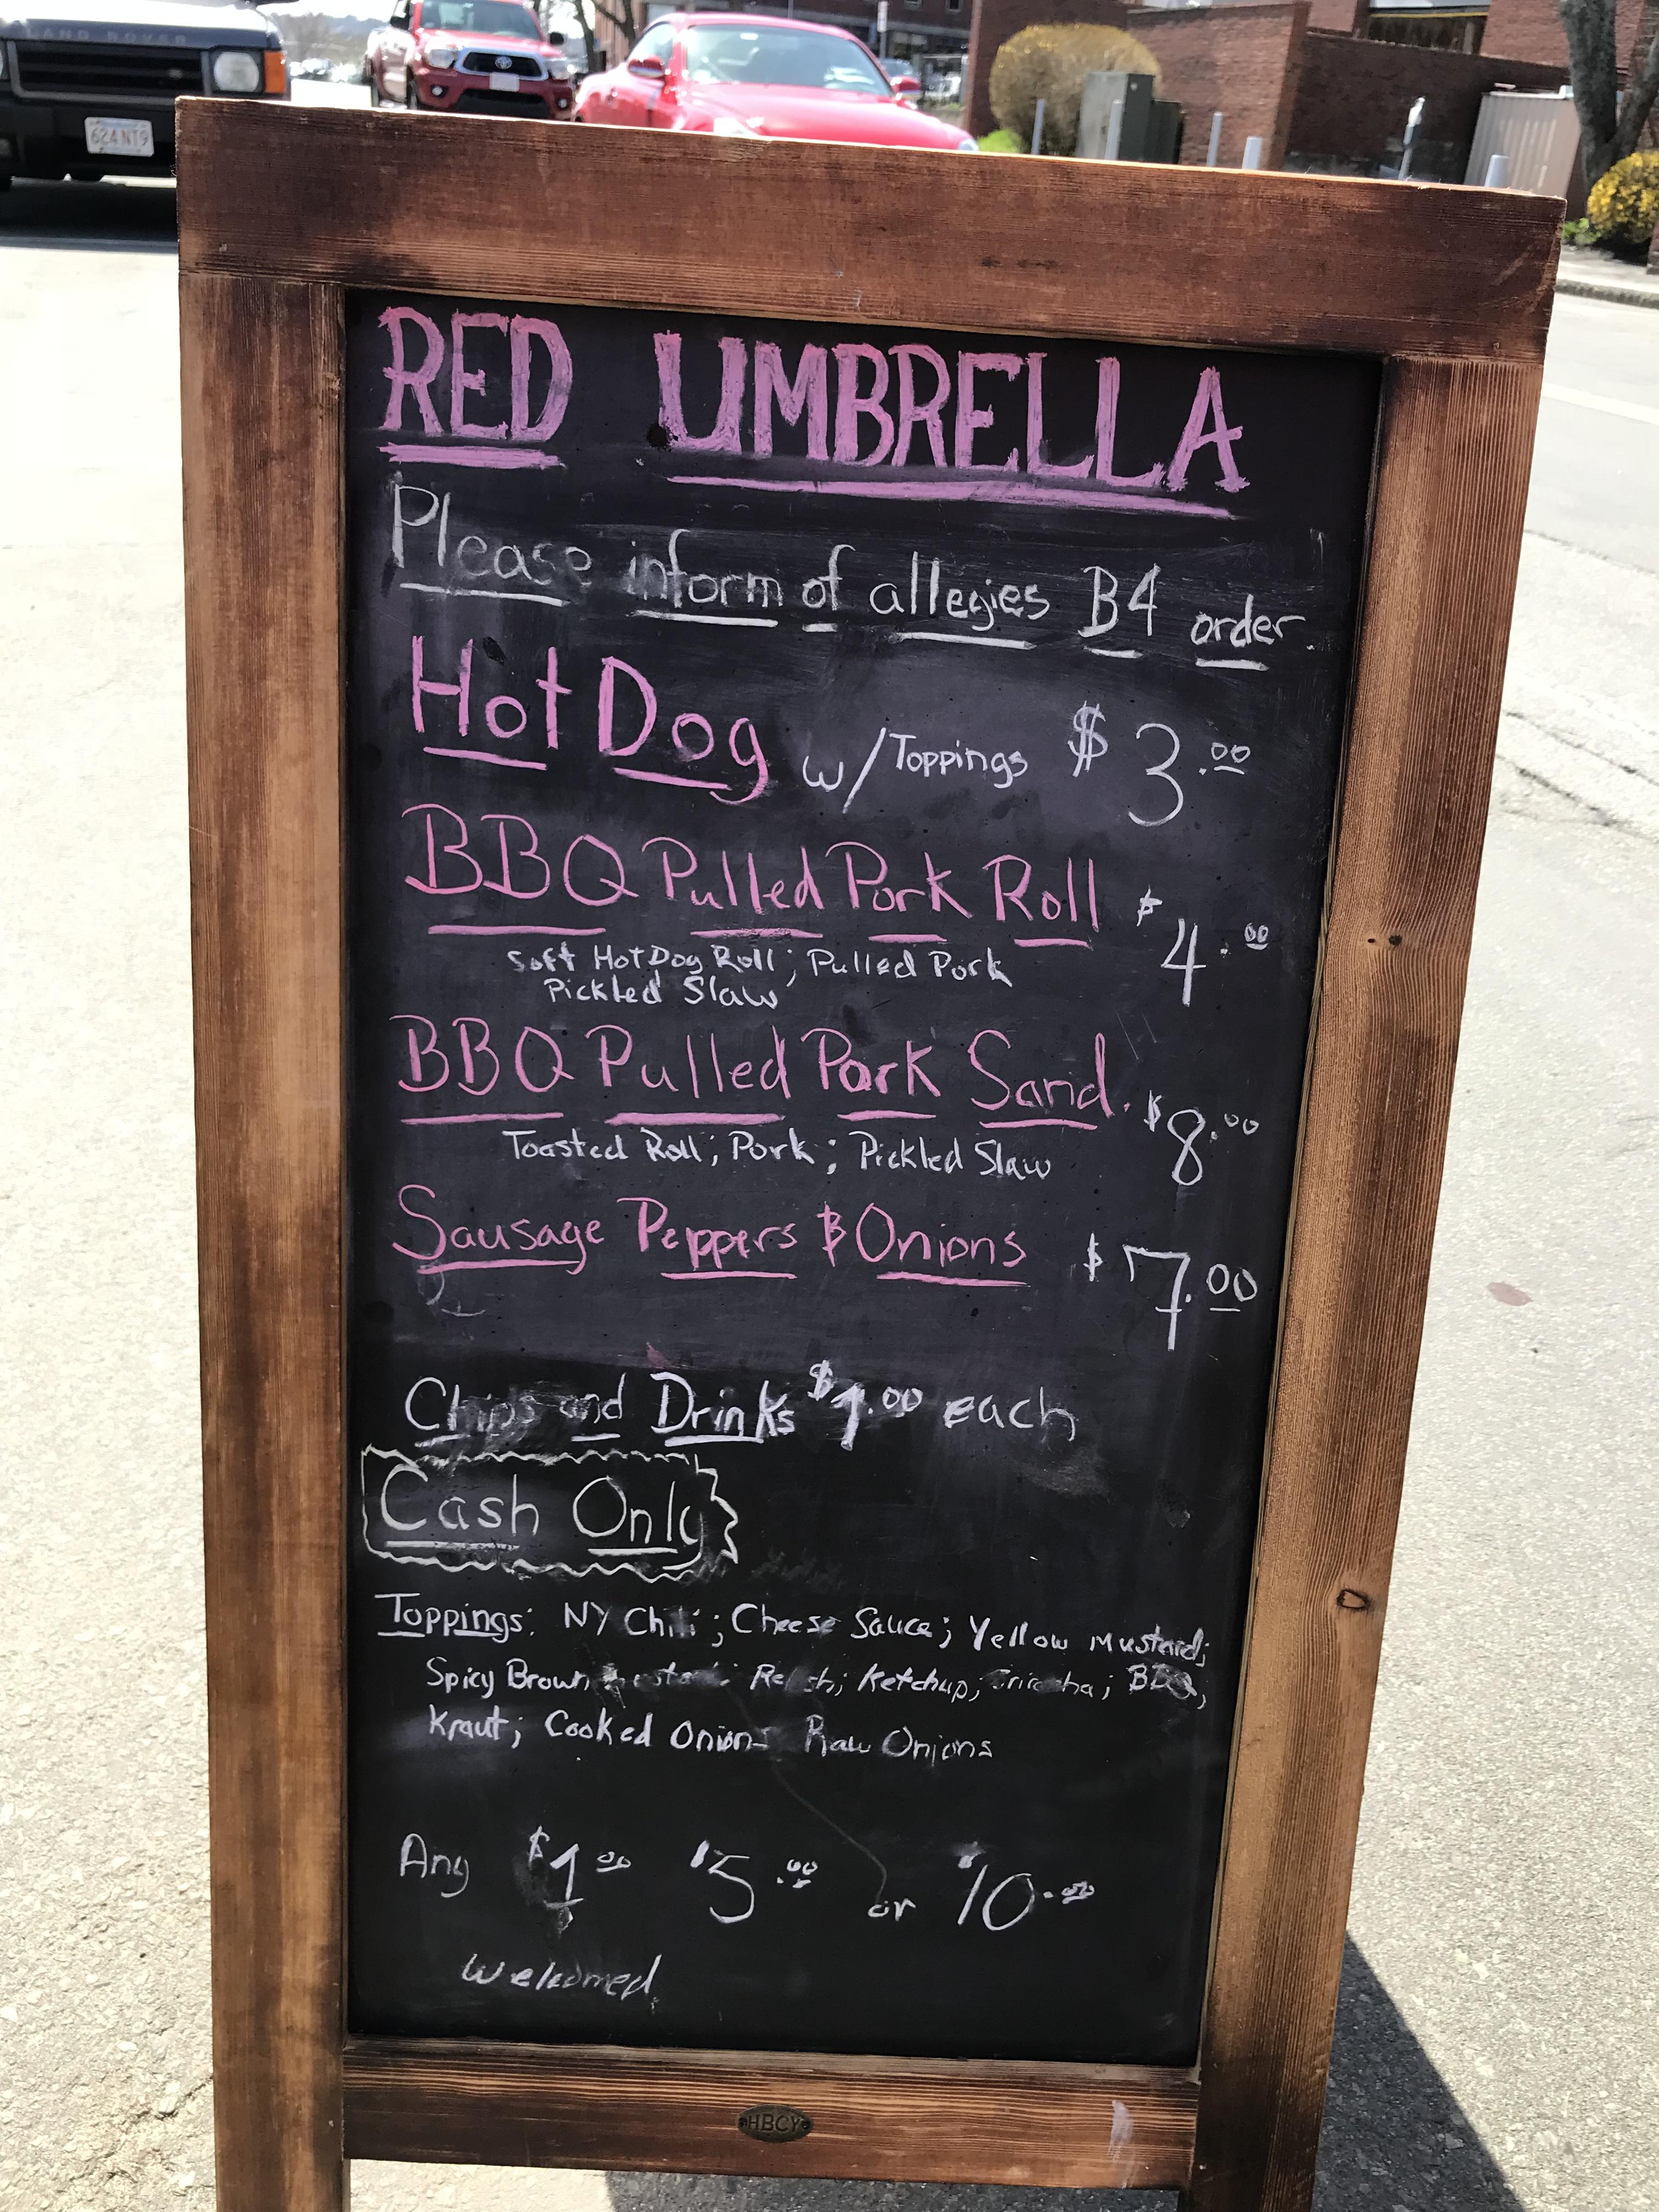 LAND ROVER
624 NT9
RED UMBRELLA
Please inform of allegies B4 order.
Hot Dog w/Toppings $3.00
BBQ Pulled Pork Roll $4.00
Soft Hot Dog Roll; Pulled Pork
Pickled Slaw
BBQ Pulled Pork Sand. $8.00
Toasted Roll; Pork; Pickled Slaw
Sausage Peppers & Onions $7.00
Chips and Drinks $1.00 each
Cash Only
Toppings: NY Chili; Cheese Sauce; Yellow Mustard;
Spicy Brown Mustard; Relish; Ketchup; Sriracha; BBQ;
Kraut; Cooked Onions Raw Onions
Any $1.00 $5.00 or $10.00
welcomed
HBCY